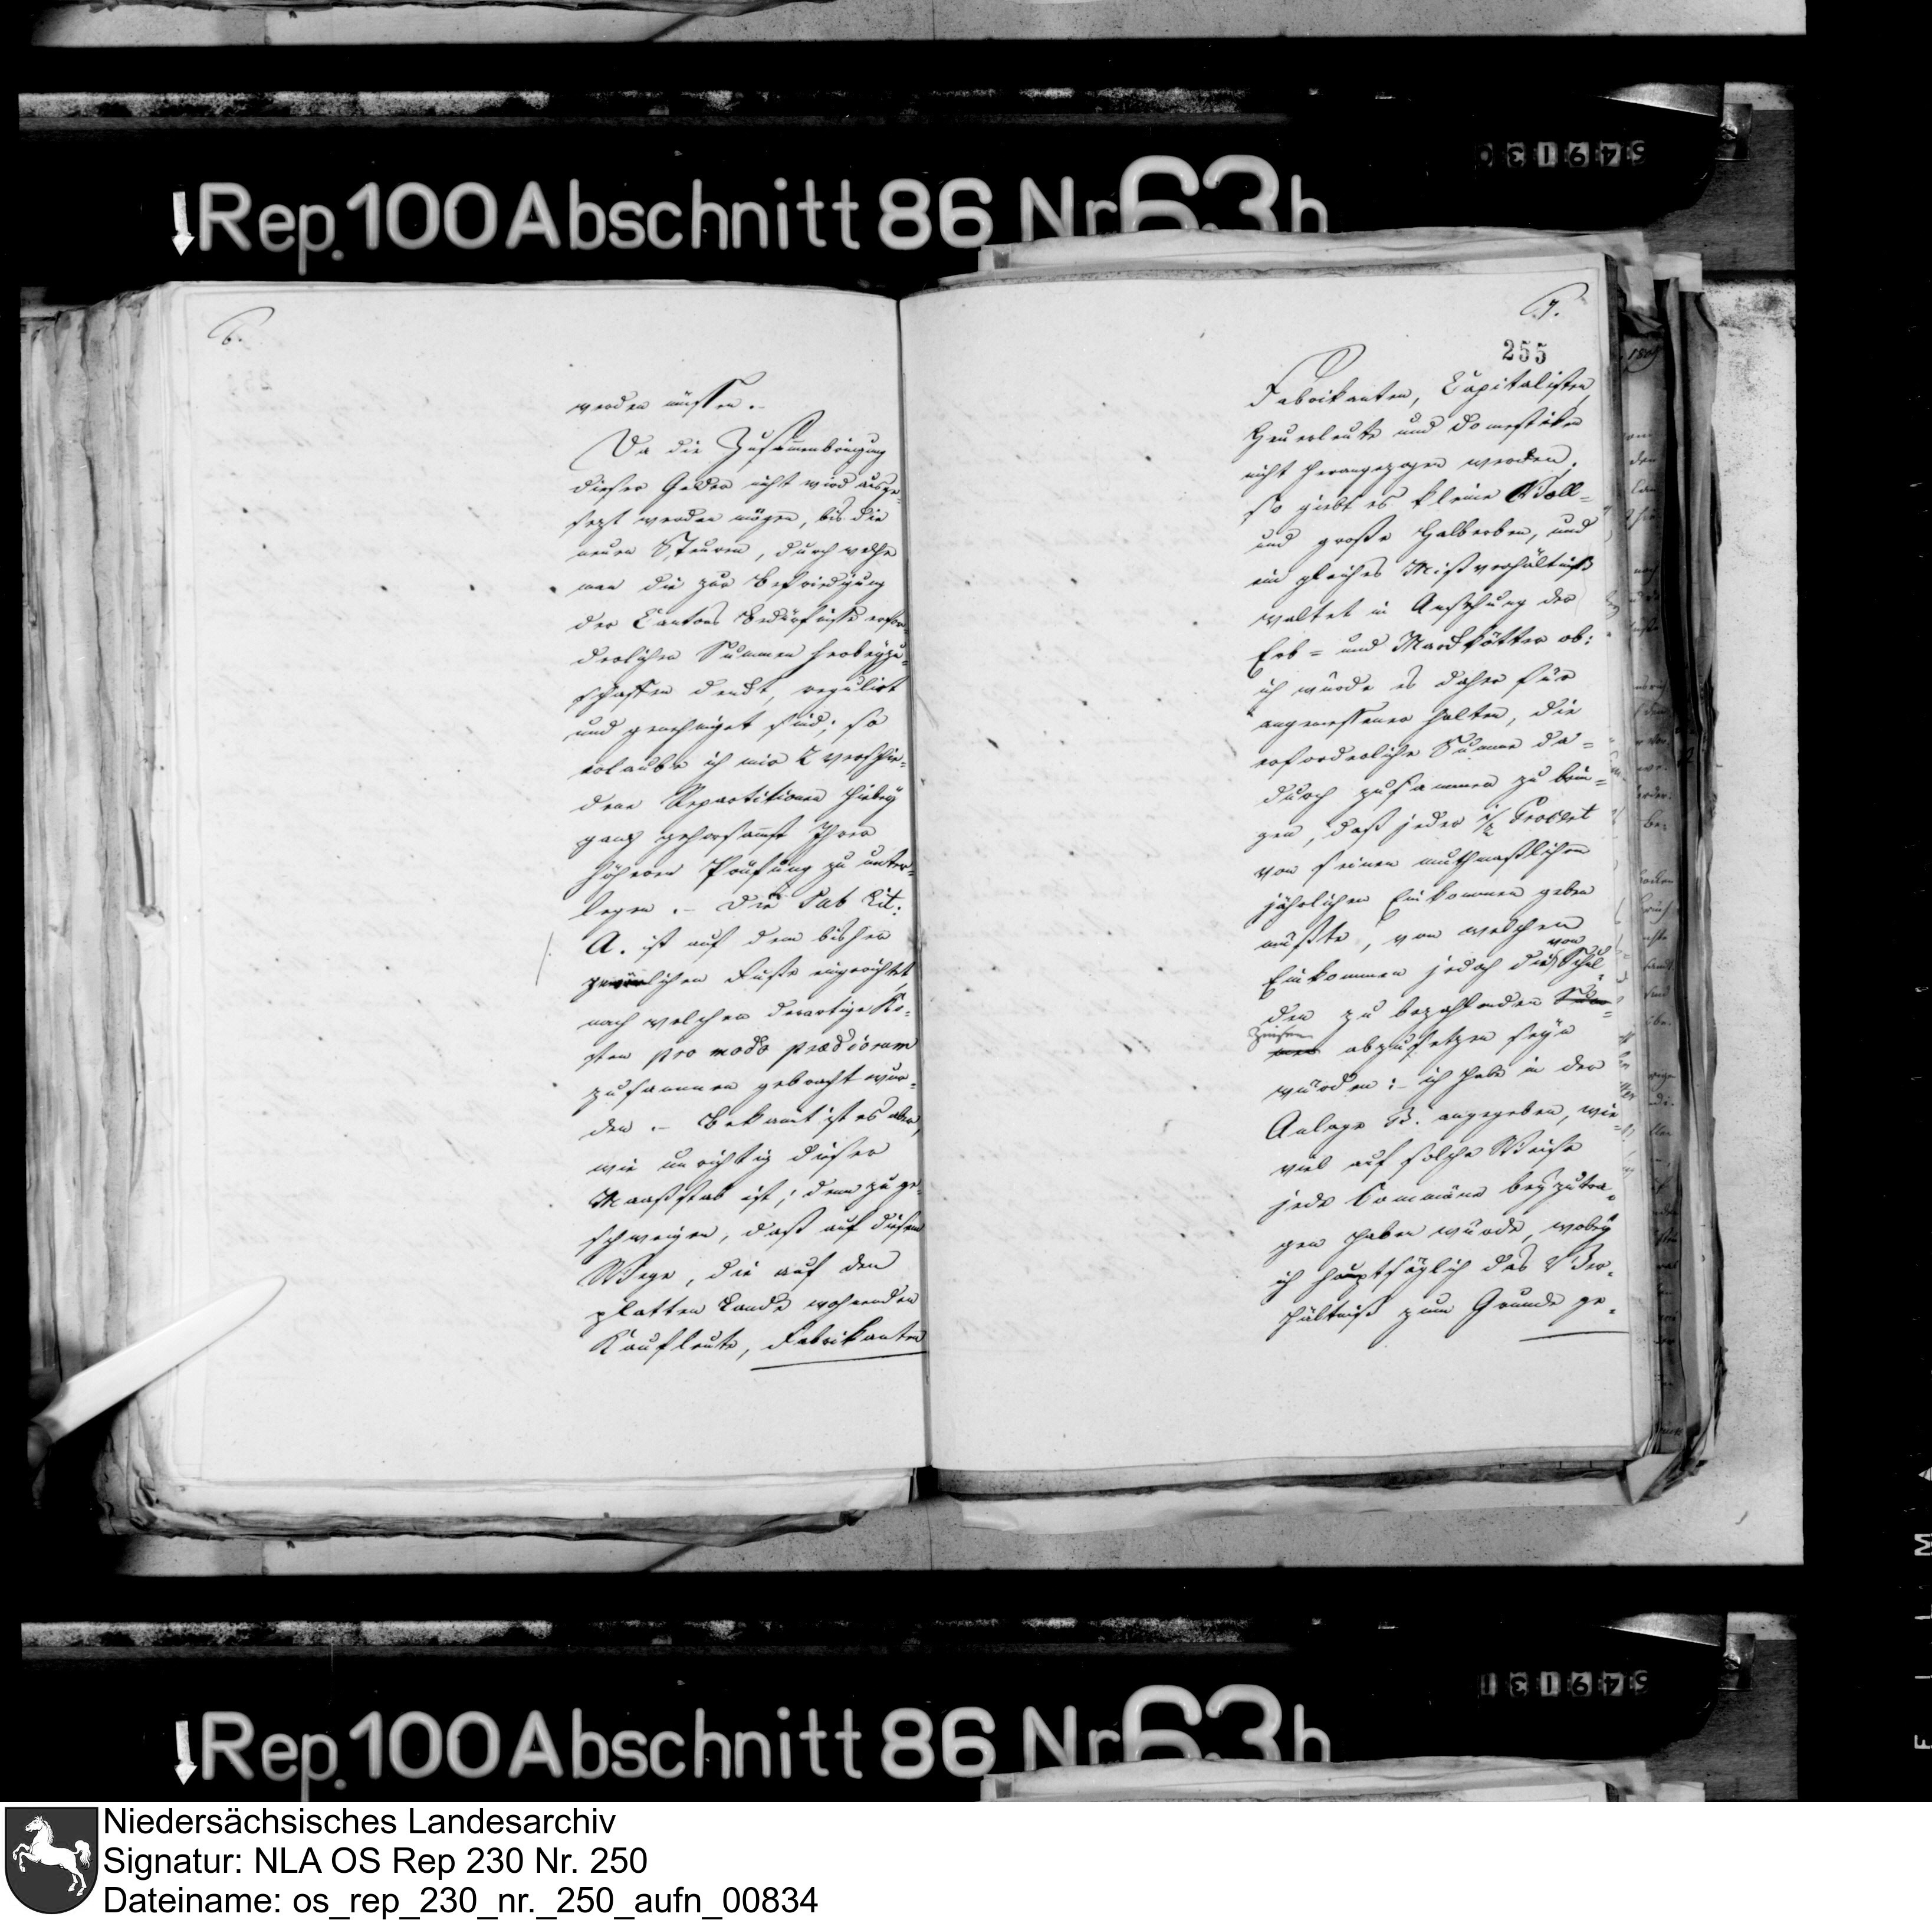 Rep. 100 Abschnitt 86 Nr 63h
6.
werden müssen.
Da die Zusammenbringung
dieser Gelder nicht wird ausge-
sezt werden mögen, bis die
neuen Steuren, durch welche
man die zur Befriedigung
der Cantons Bedürfnisse erfor-
derlichen Summen herbeyzu-
schaffen denckt, regulirt
und genehmiget sind; so
erlaube ich mir 2 verschie-
dene Repartitionen hiebey
ganz gehorsamst Ihrer
höheren Prüfung zu unter-
legen. – Die Sub Lit:
A. ist auf dem bisher
lichen Fusse eingerichtet,
nach welchen derartige Ko-
sten pro modo praediorum
zusammen gebracht wur-
den. – Bekannt ist es aber,
wie unrichtig dieser
Maaßstab ist; denn zu ge-
schweigen, daß auf diesem
Wege, die auf dem
platten Lande wohnenden
Kaufleute, Fabrikanten
7.
255
Fabrikanten, Capitalisten,
Heuerleute und Domestiken
nicht herangezogen werden,
so giebt es kleine Voll-
und große Halberben, und
ein gleiches Mißverhältniß
waltet in Ansehung der
Erb- und Marckkötter ob:
ich würde es daher für
angemessener halten, die
erforderliche Summe da-
durch zusammen zu brin-
gen, daß jeder 1/2 Procet
von seinem muthmaßlichen
jährlichen Einkommen geben
müßte, von welchem
Einkommen jedoch die von Schul-
den zu bezahlenden Sum-
Zinsen
men abzusetzen seyn
würden: – ich habe in der
Anlage B. angegeben, wie
viel auf solche Weise
jede Commüne beyzutra-
gen haben würde, wobey
ich hauptsächlich das Ver-
hältniß zum Grunde ge-
Rep. 100 Abschnitt 86 Nr 63h
Niedersächsisches Landesarchiv
Signatur: NLA OS Rep 230 Nr. 250
Dateiname: os_rep_230_nr._250_aufn_00834